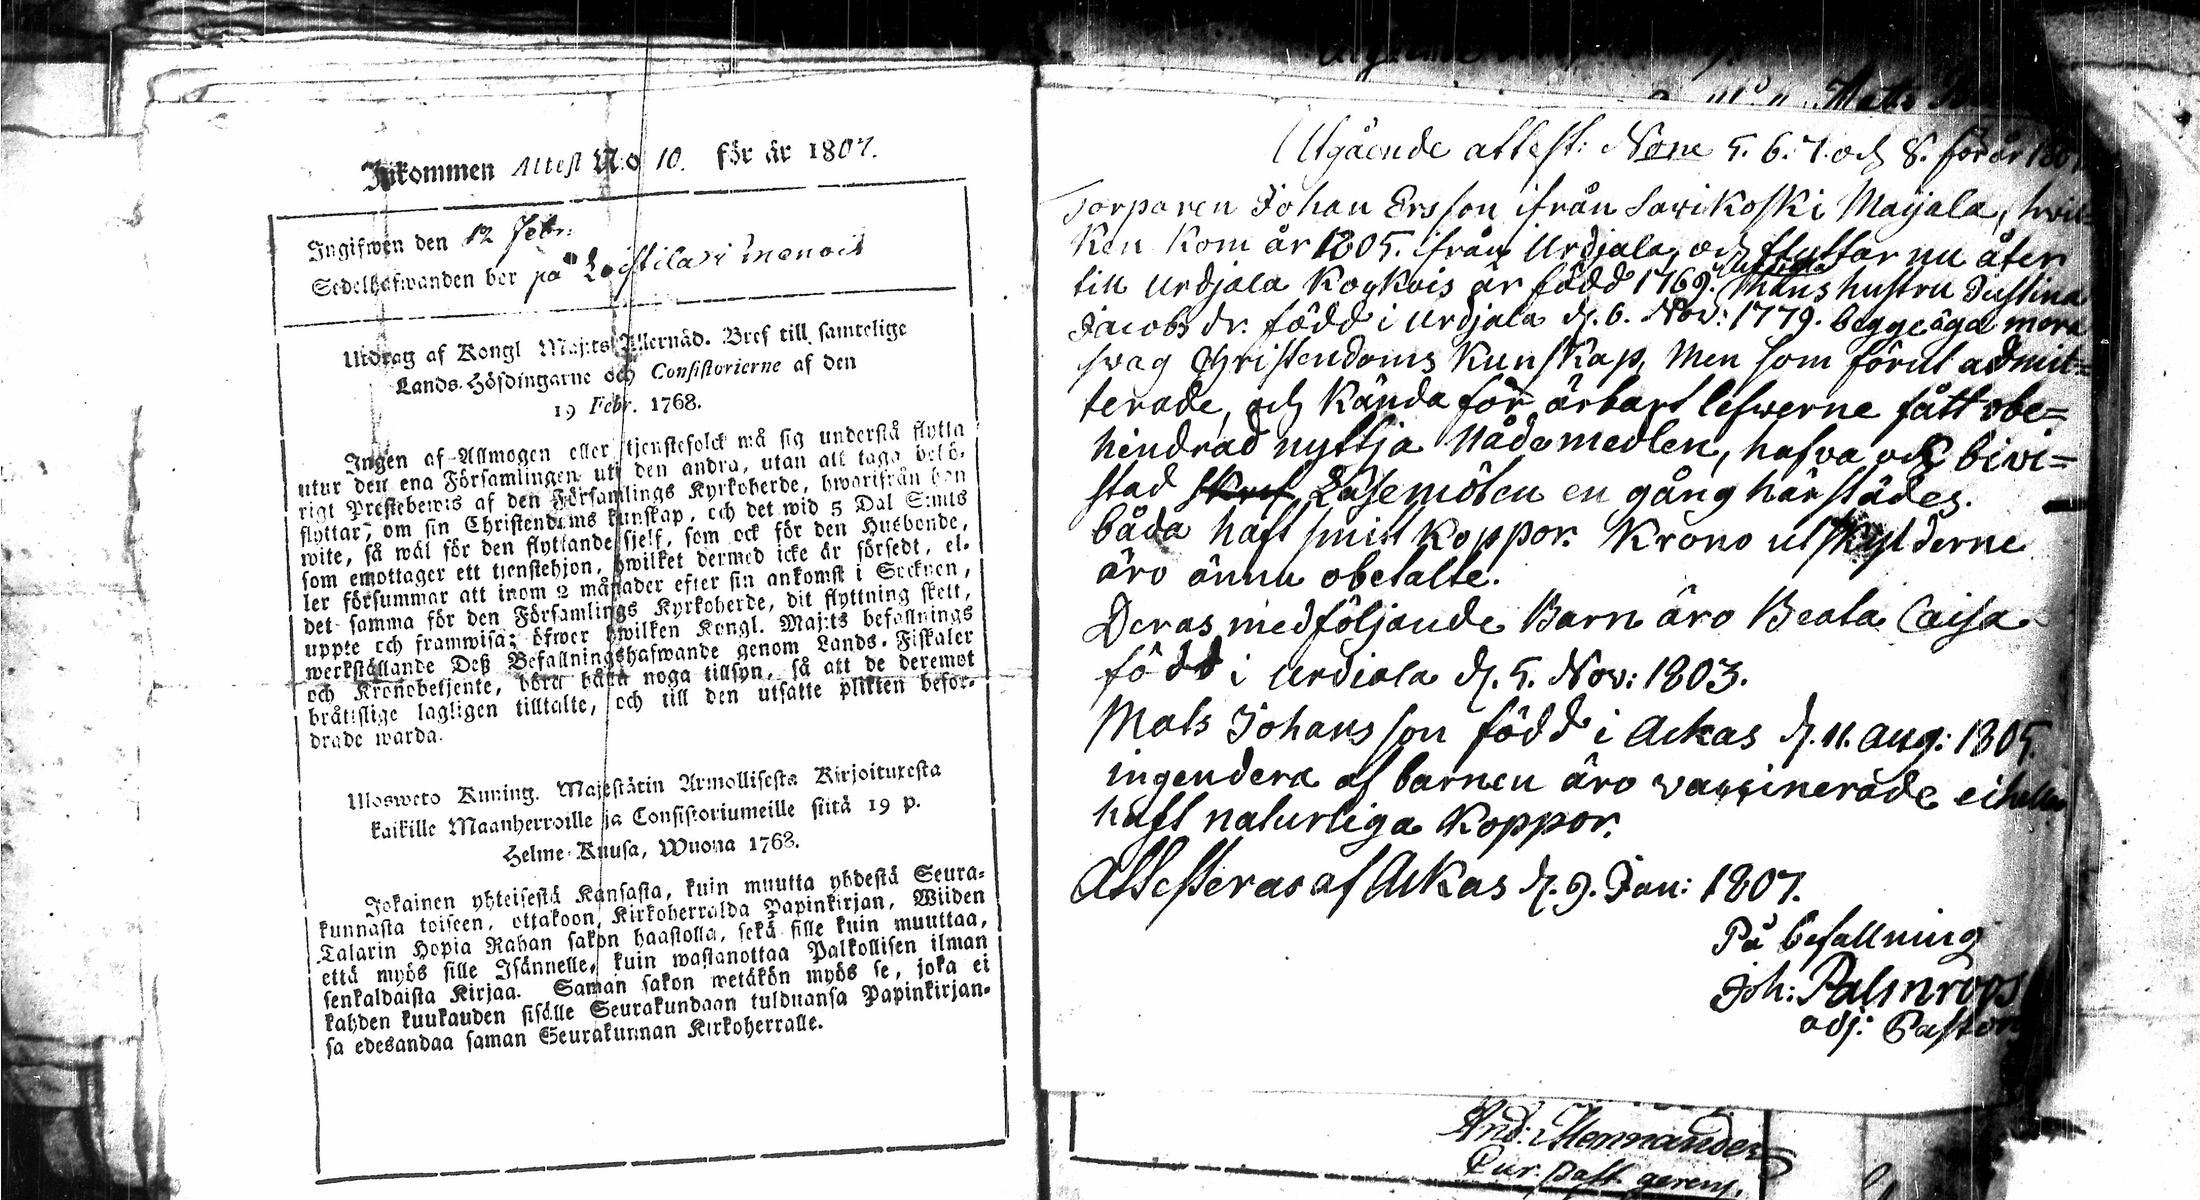 Inkommen Attest N:o 10. för år 1807.
Ingifwen den 12 Febr:
Sedelhafwanden bor på
Utdrag af Kongl Maj:ts Allernåd. Bref till samtelige
Lands-Höfdingarne och Consistorierne af den
19 Febr. 1768.
Ingen af Allmogen eller tjenstefolck må sig understå flytta
utur den ena Församlingen uti den andra, utan att taga behö-
rigt Prestebewis af den Församlings Kyrkoherde, hwarifrån han
flyttar, om sin Christendoms kunskap, och det wid 5 Dal S:mts
wite, så wäl för den flyttande sjelf, som ock för den Husbonde,
som emottager ett tjenstehjon, hwilket dermed icke är försedt, el-
ler försummar att inom 2 månader efter sin ankomst i Socknen,
det samma för den Församlings Kyrkoherde, dit flyttning skett,
uppte och framwisa; öfwer hwilken Kongl. Maj:ts befallnings
werkställande Deß Befallningshafwande genom Lands-Fiskaler
och Kronobetjente, böra hålla noga tillsyn, så att de deremot
bråttslige lagligen tilltalte, och till den utsatte plikten befor-
drade warda.
Ulosweto Kuning. Majestätin Armollisesta Kirjoituxesta
kaikille Maanherroille ja Consistoriumeille siitä 19 p.
Helme-Kuusa, Wuona 1768.
Jokainen yhteisestä Kansasta, kuin muutta yhdestä Seura-
kunnasta toiseen, ottakoon Kirkoherralda Papinkirjan, Wiiden
Talarin Hopia Rahan sakon haastolla, sekä sille kuin muuttaa,
että myös sille Isännelle, kuin wastanottaa Palkollisen ilman
senkaldaista Kirjaa. Saman sakon wetäkön myös se, joka ei
kahden kuukauden sisälle Seurakundaan tulduansa Papinkirjan-
sa edesandaa saman Seurakunnan Kirkoherralle.
Mats
Utgående attest: No 5. 6. 7. och 8. för år 1807
Torparen Johan Ersson ifrån Sarikoski Maijala, hwil=
ken kom år 1805. ifrån Urdjala, och flyttar nu åter
till Urdjala Kogkois är född 1769. hans hustru Justina
Jacobs dr. född i Urdjala d. 6. Nov: 1779. begge äga
swag Christendoms kunskap, Men som förut admit=
terade, och kända för ärbart lefwerne fått obe=
hindrad nyttja Nådemedlen, hafva och biwi=
stad Läsemöten en gång härstädes.
båda haft koppor. Krono utskylderne
äro ännu obetalte.
Deras medföljande Barn äro Beata Caisa
född i Urdiala d. 5. Nov: 1803.
Mats Johansson född i Ackas d. 11. Aug: 1805.
ingendera af barnen äro vaccinerade ei heller
haft naturliga koppor.
Attesteras af Ackas d. 9. Jan: 1807.
På befallning
Joh: Palmroos
adj: Pastor
And: Mennander
Cur. Past. gerens.